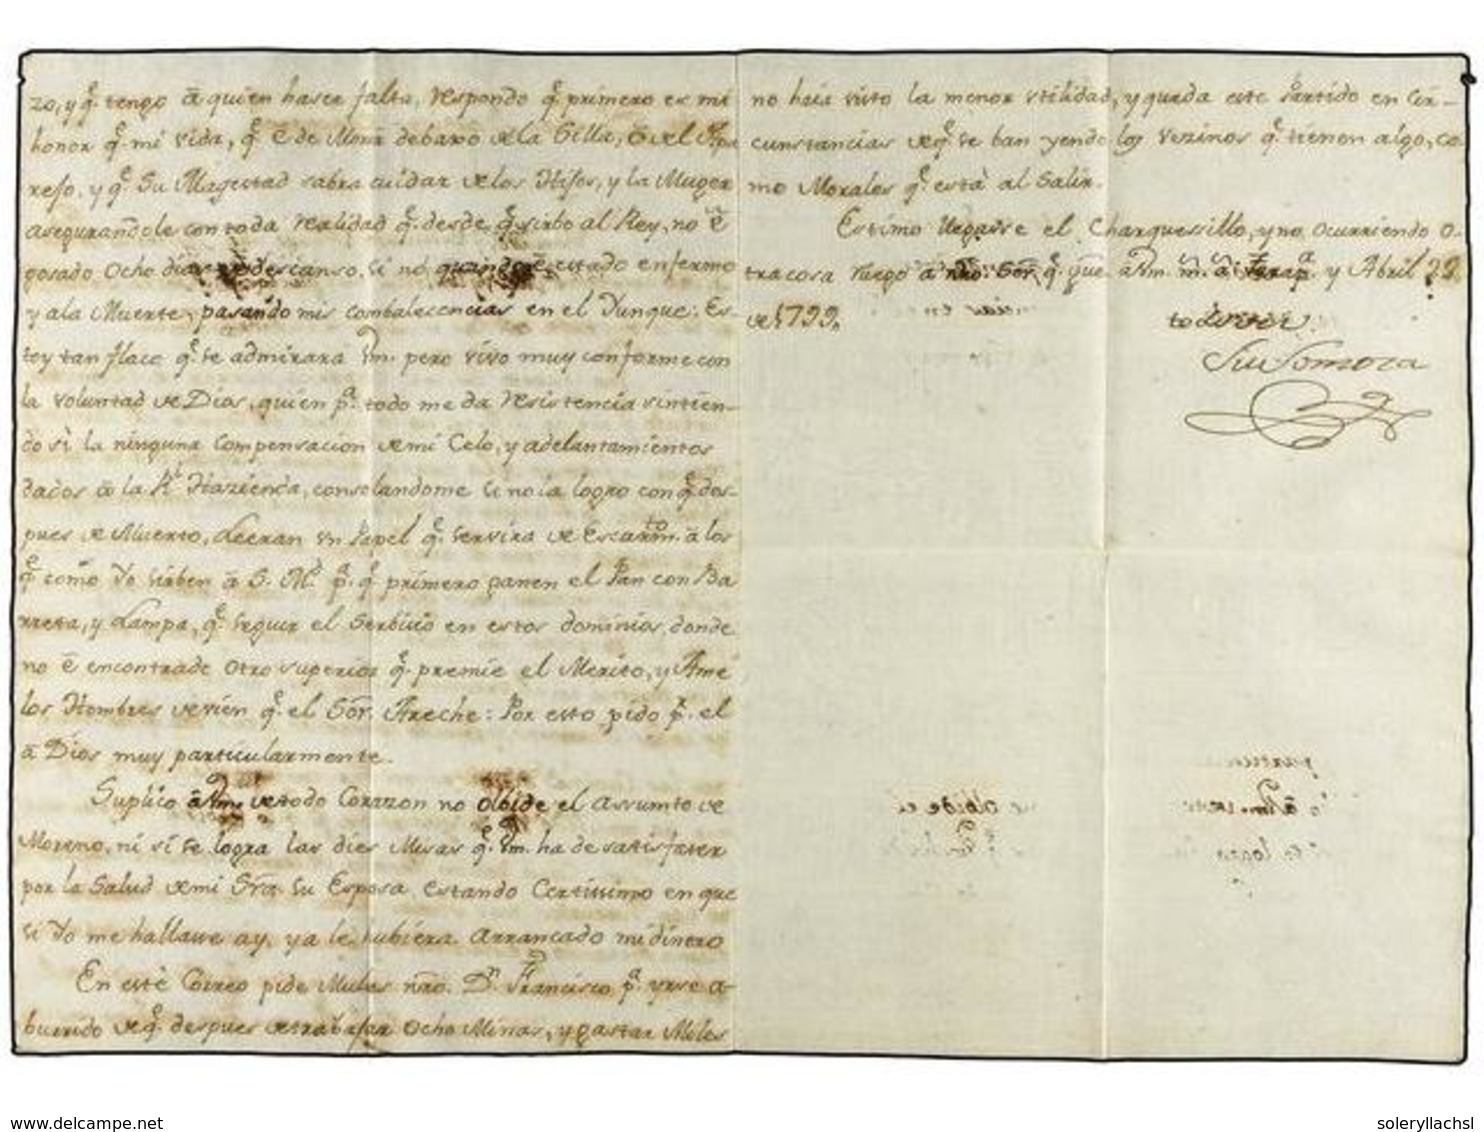 zo, y q.e tengo â quien haser falta, respondo q.e primero es mi
honor q.e mi vida, q.e ê de Morir debaxo de la Silla, ô el
reso, y q.e Su Magestad sabra cuidar de los Hijos, y la Muger
asegurandole con toda realidad q.e desde q.e sirbo al Rey, no ê
posado Ocho dias de descanso, si no quando ê estado enfermo
y a la Muerte, pasando mis combalecencias en el Yunque: Es-
toy tan flaco q.e se admirara Vm. pero vivo muy conforme con
la voluntad de Dios, quien p.a todo me da resistencia sintien-
do si la ninguna Compensacion de mi Celo, y adelantamientos
dados â la R.l Hazienda, consolandome si no la logro con q.e des-
pues de Muerto, Leeran un Papel q.e servira de Escarm.to â los
q.e como Yo sirben â S. M.d p.a q.e primero ganen el Pan con Ba
rreta, y Lampa, q.e seguir el Serbicio en estos dominios, donde
no ê encontrado Otro superior q.e premie el Merito, y Ame
los Hombres de vien q.e el Sôr. Areche: Por esto pido p.r el
â Dios muy particularmente.
Suplico â Vm. de todo Corazon no olbide el assumto de
Moreno, ni si se logra las dies Misas q.e Vm. ha de satisfacer
por la Salud de mi Srã. su Esposa, estando Certissimo en que
si Yo me hallase ay, ya le hubiera arrancado mi dinero
En este Correo pide Mulas nrõ. D.n Francisco p.a yrse a-
burrido de q.e despues de trabajar Ocho Minas, y gastar Miles
no haia visto la menor utilidad, y queda este Partido en Cir-
cunstancias de q.e se ban yendo los vezinos q.e tienen algo, co
mo Morales q.e està al Salir.
Estimo llegasse el Charquesillo, y no Ocurriendo O-
tra cosa ruego â nrõ. Sôr. q.e gûe. â Vm. m.s a.s y Abril 22
de 1799.
Su Somoza
www.delcampe.net
soleryllachsl